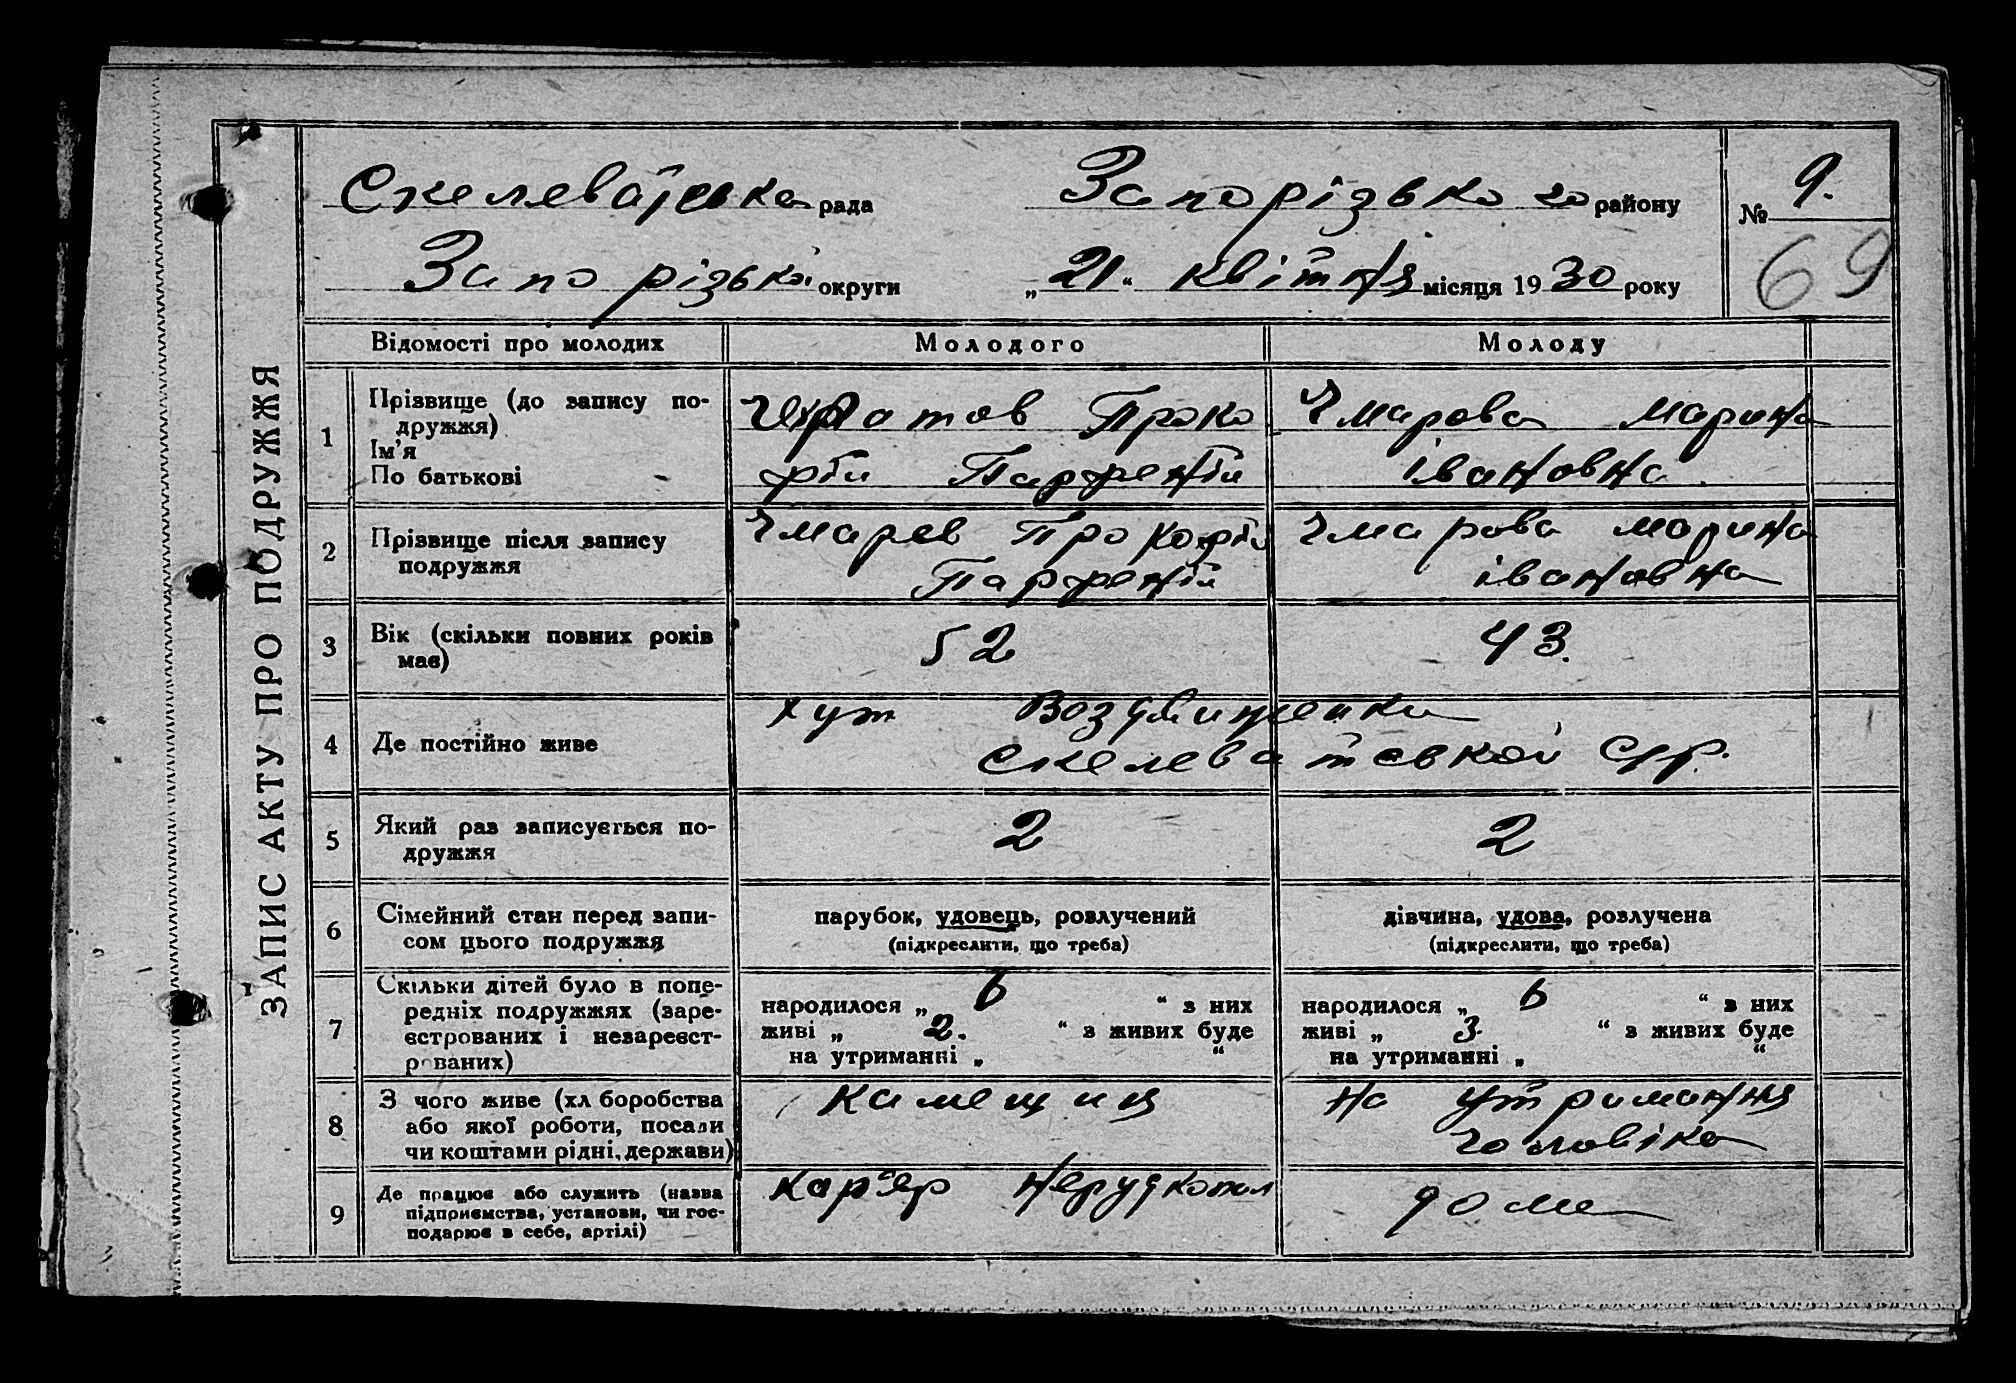 ЗАПИС АКТУ ПРО ПОДРУЖЖЯ
рада Запорізького району № 9.
Запорізької округи „21“ квітня місяця 1930 року 69
Відомості про молодих Молодого Молоду
1 Прізвище (до запису подружжя) Ім'я По батькові
Проко
фій Парфентій
Чмарова Марина
Івановна
2 Прізвище після запису подружжя
Чмарев Прокофій
Парфентій
Чмарова Марина
Івановна
3 Вік (скільки повних років має) 52 43.
4 Де постійно живе
хут
Скелеватовкой
5 Який раз записується подружжя 2 2
6 Сімейний стан перед записом цього подружжя
парубок, удовець, розлучений
(підкреслити, що треба)
дівчина, удова, розлучена
(підкреслити, що треба)
7 Скільки дітей було в попередніх подружжях (зареєстрованих і незареєстрованих)
народилося „ 6 “ з них
живі „ 2. “ з живих буде
на утриманні „ “
народилося „ 6 “ з них
живі „ 3. “ з живих буде
на утриманні „ “
8 З чого живе (хл боробства
або якої роботи, посади
чи коштами рідні, держави)
Камещиц
На утримання
чоловіка
9 Де працює або служить (назва
підприємства, установи, чи гос-
подарює в себе, артілі)
Кар'єр
дома